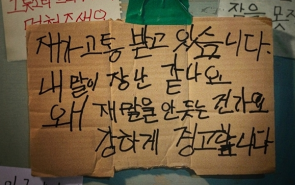 멈춰주세요
잠을 못
재가 고통 받고 있습니다.
내 말이 장난 같나요
왜 재 말을 안 듣는 건가요
강하게 경고합니다